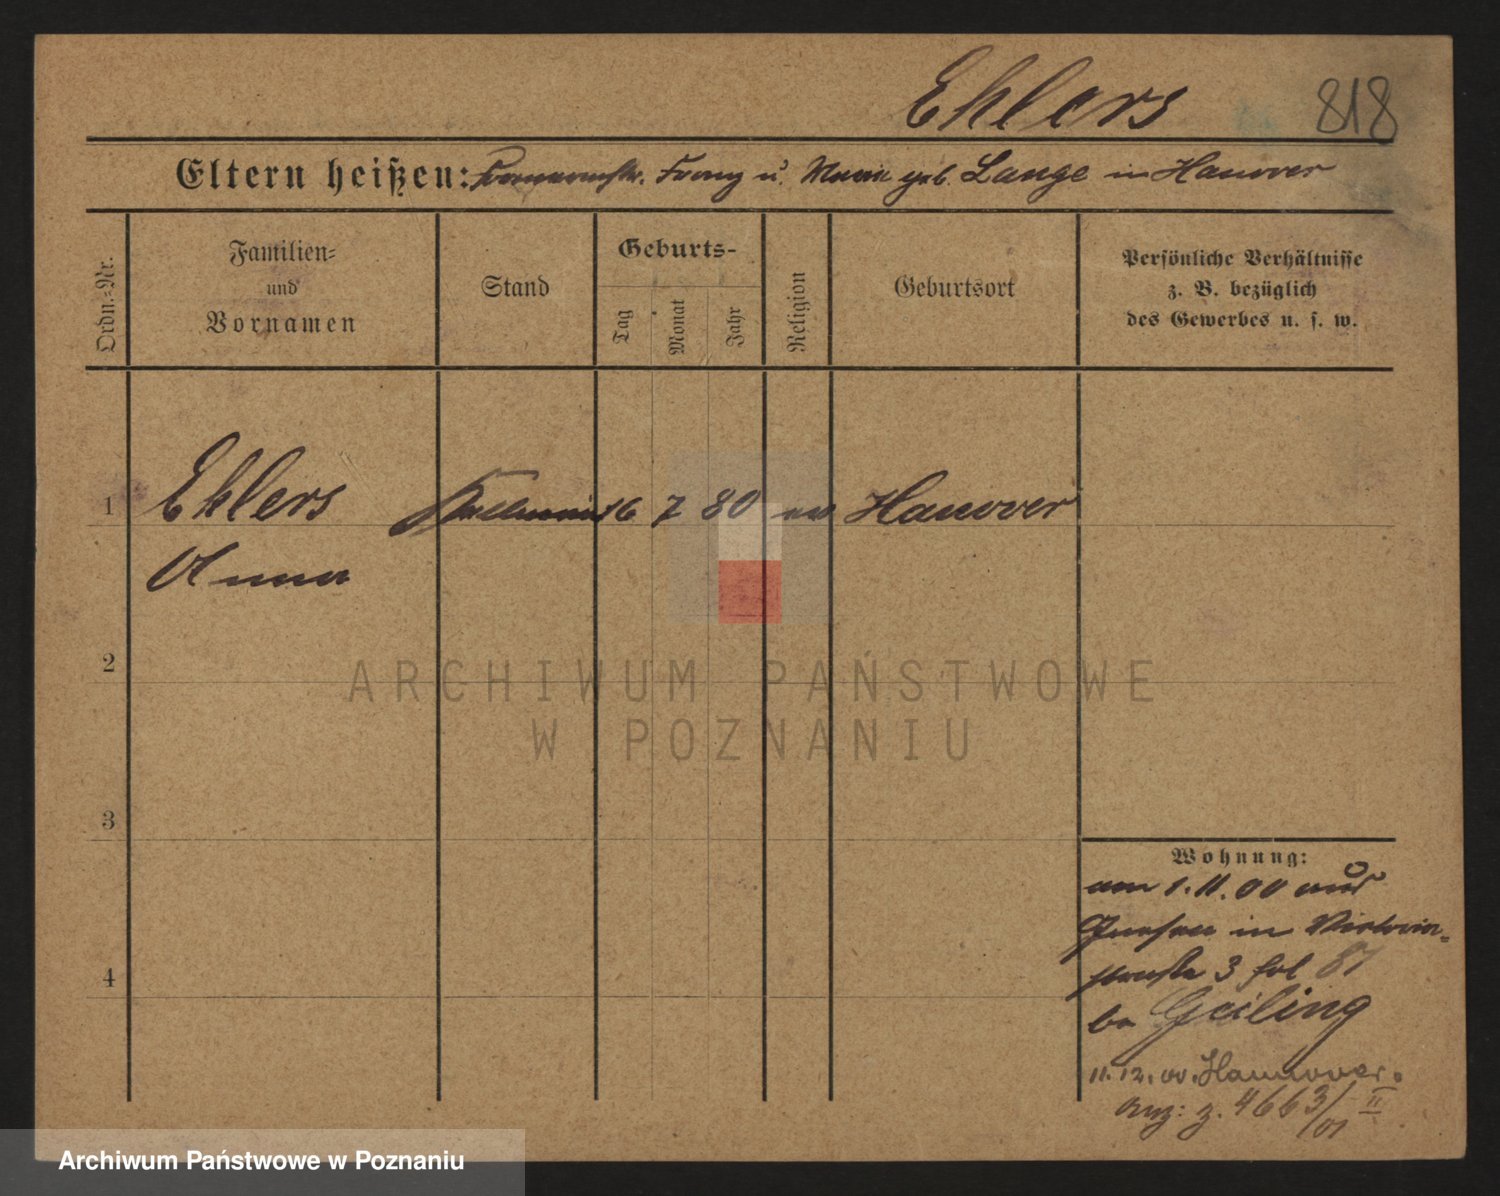 Ehlers 818
Eltern heißen: Franz u. Marie geb. Lange in Hanover
Ordn.-Nr.
Familien-
und
Vornamen
Stand
Geburts-
Tag
Monat
Jahr
Religion
Geburtsort
Persönliche Verhältnisse
z. B. bezüglich
des Gewerbes u. s. w.
1 Ehlers Kellnerin 16 7 80 ev Hanover
Anna
2
3
4
Wohnung:
am 1.11.00 aus
Gnesen in Victoria-
strasse 3 bei 87
bei Geiling
11.12.00. Hannover.
Anz: z. 4663/01 II
ARCHIWUM PAŃSTWOWE
W POZNANIU
Archiwum Państwowe w Poznaniu